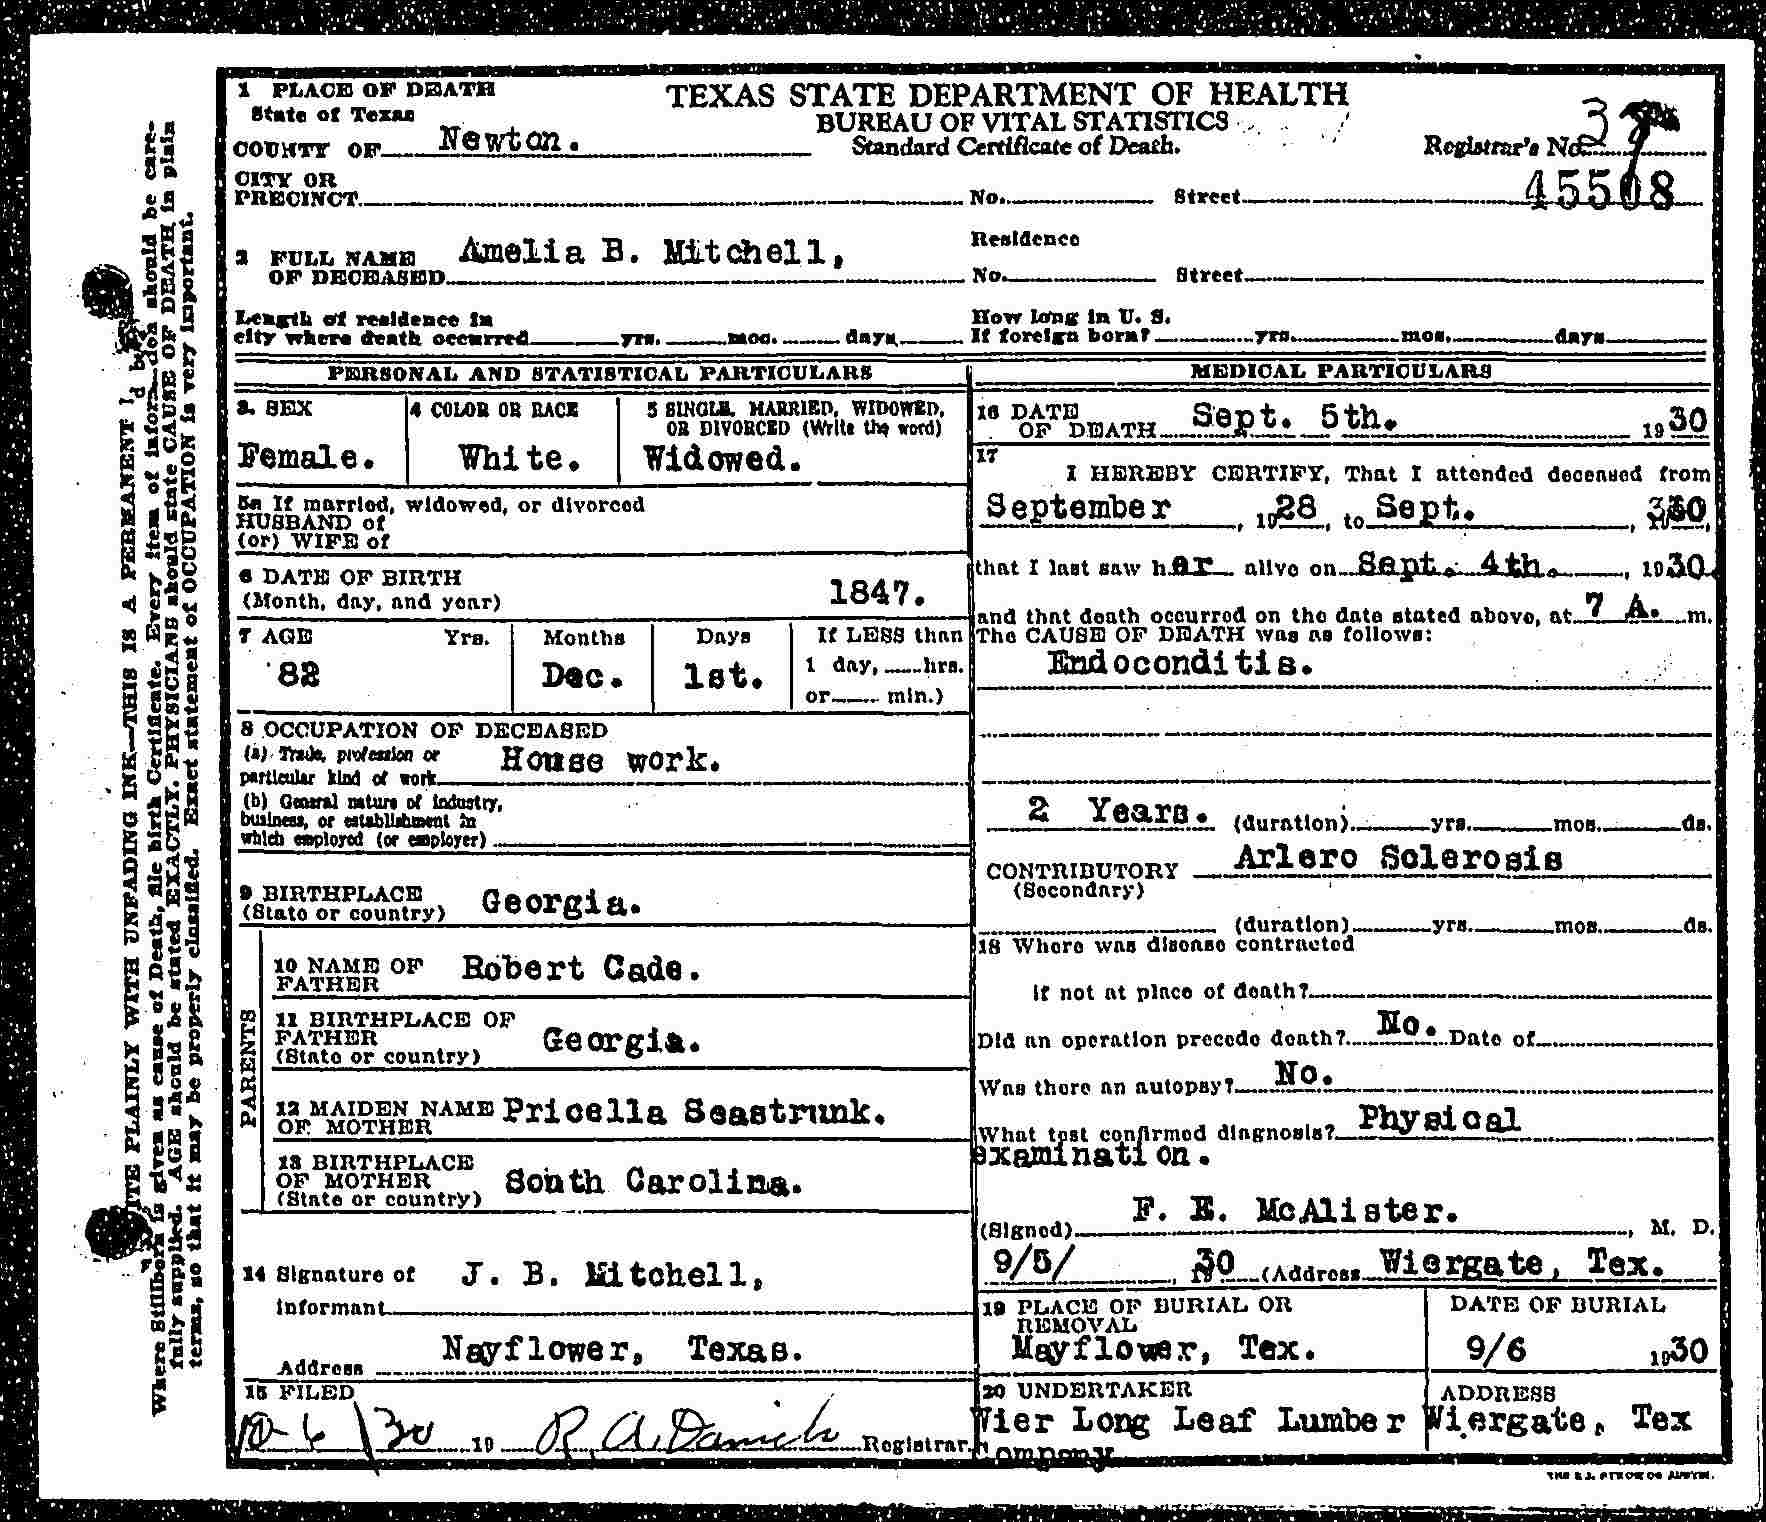 1 PLACE OF DEATH
State of Texas
TEXAS STATE DEPARTMENT OF HEALTH
BUREAU OF VITAL STATISTICS
Standard Certificate of Death.
COUNTY OF Newton.
Registrar's No. 3
CITY OR
PRECINCT No. Street
45508
2 FULL NAME
OF DECEASED Amelia B. Mitchell,
Residence
No. Street
Length of residence in
city where death occurred yrs. mos. days
How long in U. S.
If foreign born? yrs. mos. days
PERSONAL AND STATISTICAL PARTICULARS
3. SEX
Female.
4 COLOR OR RACE
White.
5 SINGLE, MARRIED, WIDOWED,
OR DIVORCED (Write the word)
Widowed.
5a If married, widowed, or divorced
HUSBAND of
(or) WIFE of
6 DATE OF BIRTH
(Month, day, and year) 1847.
7 AGE Yrs. Months Days If LESS than
82 Dec. 1st. 1 day, hrs.
or min.)
8 OCCUPATION OF DECEASED
(a) Trade, profession or
particular kind of work House work.
(b) General nature of industry,
business, or establishment in
which employed (or employer)
9 BIRTHPLACE
(State or country) Georgia.
PARENTS
10 NAME OF
FATHER Robert Cade.
11 BIRTHPLACE OF
FATHER
(State or country) Georgia.
12 MAIDEN NAME
OF MOTHER Pricella Seastrunk.
13 BIRTHPLACE
OF MOTHER
(State or country) South Carolina.
14 Signature of
Informant J. B. Mitchell,
Address Nayflower, Texas.
15 FILED
10-6/30 19 R. A. Daniels Registrar.
MEDICAL PARTICULARS
16 DATE
OF DEATH Sept. 5th. 1930
17
I HEREBY CERTIFY, That I attended deceased from
September, 1928, to Sept.,
that I last saw her alive on Sept. 4th., 1930.
and that death occurred on the date stated above, at 7 A. m.
The CAUSE OF DEATH was as follows:
Endoconditis.
2 Years. (duration) yrs. mos. ds.
CONTRIBUTORY Arlero Sclerosis
(Secondary)
(duration) yrs. mos. ds.
18 Where was disease contracted
if not at place of death?
Did an operation precede death? No. Date of
Was there an autopsy? No.
What test confirmed diagnosis? Physical
examination.
(Signed) F. E. McAlister. , M. D.
9/5/ , 30 (Address Wiergate, Tex.
19 PLACE OF BURIAL OR
REMOVAL
Mayflower, Tex.
DATE OF BURIAL
9/6 1930
20 UNDERTAKER
Wier Long Leaf Lumber
Company
ADDRESS
Wiergate, Tex
WRITE PLAINLY WITH UNFADING INK—THIS IS A PERMANENT
Where Stillborn is given as cause of Death, file birth Certificate. Every item of information should be care-
fully supplied. AGE should be stated EXACTLY. PHYSICIANS should state CAUSE OF DEATH in plain
terms, so that it may be properly classified. Exact statement of OCCUPATION is very important.